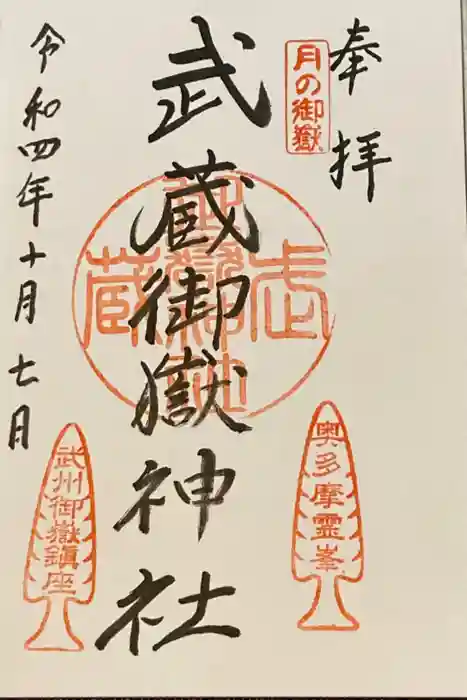 奉拝
月の御嶽
武蔵御嶽神社
奥多摩霊峯
武州御嶽鎮座
令和四年十月七日